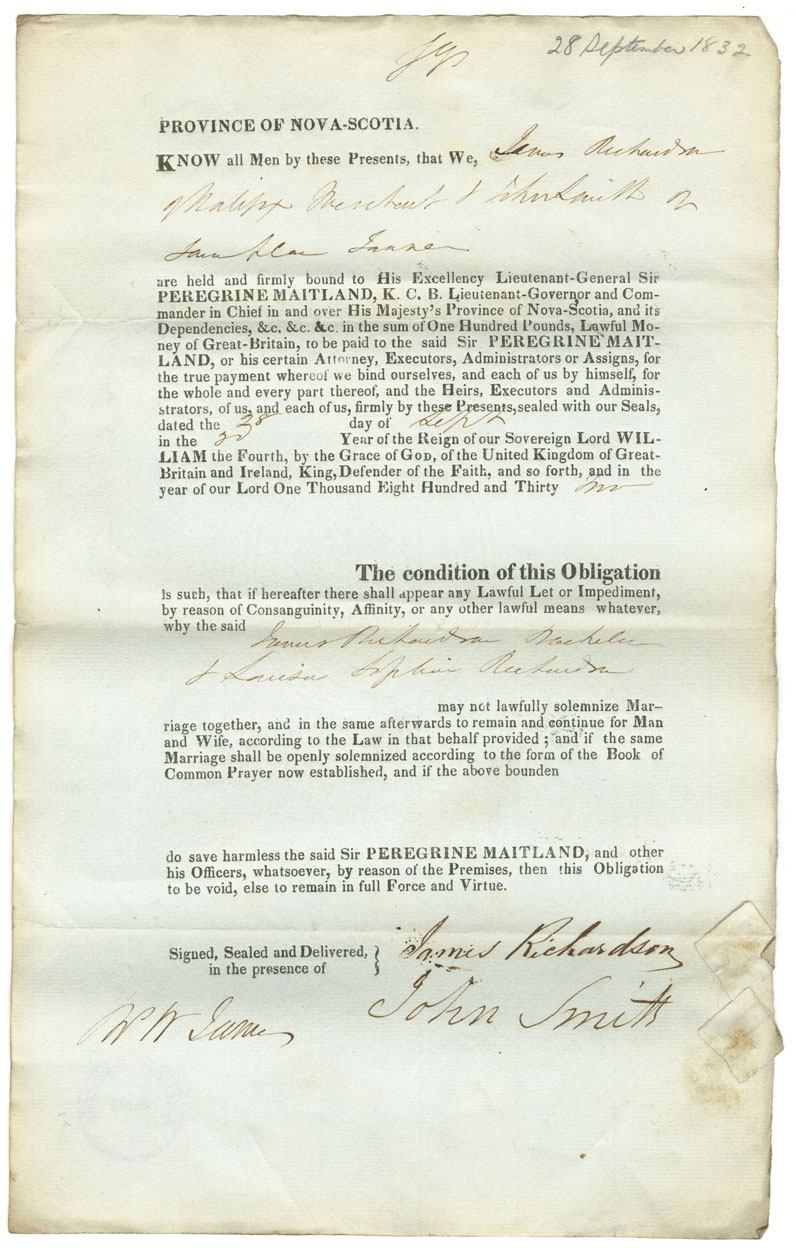 28 September 1832
PROVINCE OF NOVA-SCOTIA.
KNOW all Men by these Presents, that We, James Richardson
of Halifax Merchant & John Smith of
Same place
are held and firmly bound to His Excellency Lieutenant-General Sir
PEREGRINE MAITLAND, K. C. B. Lieutenant-Governor and Com-
mander in Chief in and over His Majesty's Province of Nova-Scotia, and its
Dependencies, &c. &c. &c. in the sum of One Hundred Pounds, Lawful Mo-
ney of Great-Britain, to be paid to the said Sir PEREGRINE MAIT-
LAND, or his certain Attorney, Executors, Administrators or Assigns, for
the true payment whereof we bind ourselves, and each of us by himself, for
the whole and every part thereof, and the Heirs, Executors and Adminis-
strators, of us, and each of us, firmly by these Presents, sealed with our Seals,
dated the 28 day of Sept
in the 3d Year of the Reign of our Sovereign Lord WIL-
LIAM the Fourth, by the Grace of GOD, of the United Kingdom of Great-
Britain and Ireland, King, Defender of the Faith, and so forth, and in the
year of our Lord One Thousand Eight Hundred and Thirty two
The condition of this Obligation
Is such, that if hereafter there shall appear any Lawful Let or Impediment,
by reason of Consanguinity, Affinity, or any other lawful means whatever,
why the said James Richardson Bachelor
& Louisa Sophia Richardson
may not lawfully solemnize Mar-
riage together, and in the same afterwards to remain and continue for Man
and Wife, according to the Law in that behalf provided ; and if the same
Marriage shall be openly solemnized according to the form of the Book of
Common Prayer now established, and if the above bounden
do save harmless the said Sir PEREGRINE MAITLAND, and other
his Officers, whatsoever, by reason of the Premises, then this Obligation
to be void, else to remain in full Force and Virtue.
Signed, Sealed and Delivered,
in the presence of
James Richardson
John Smith
W W